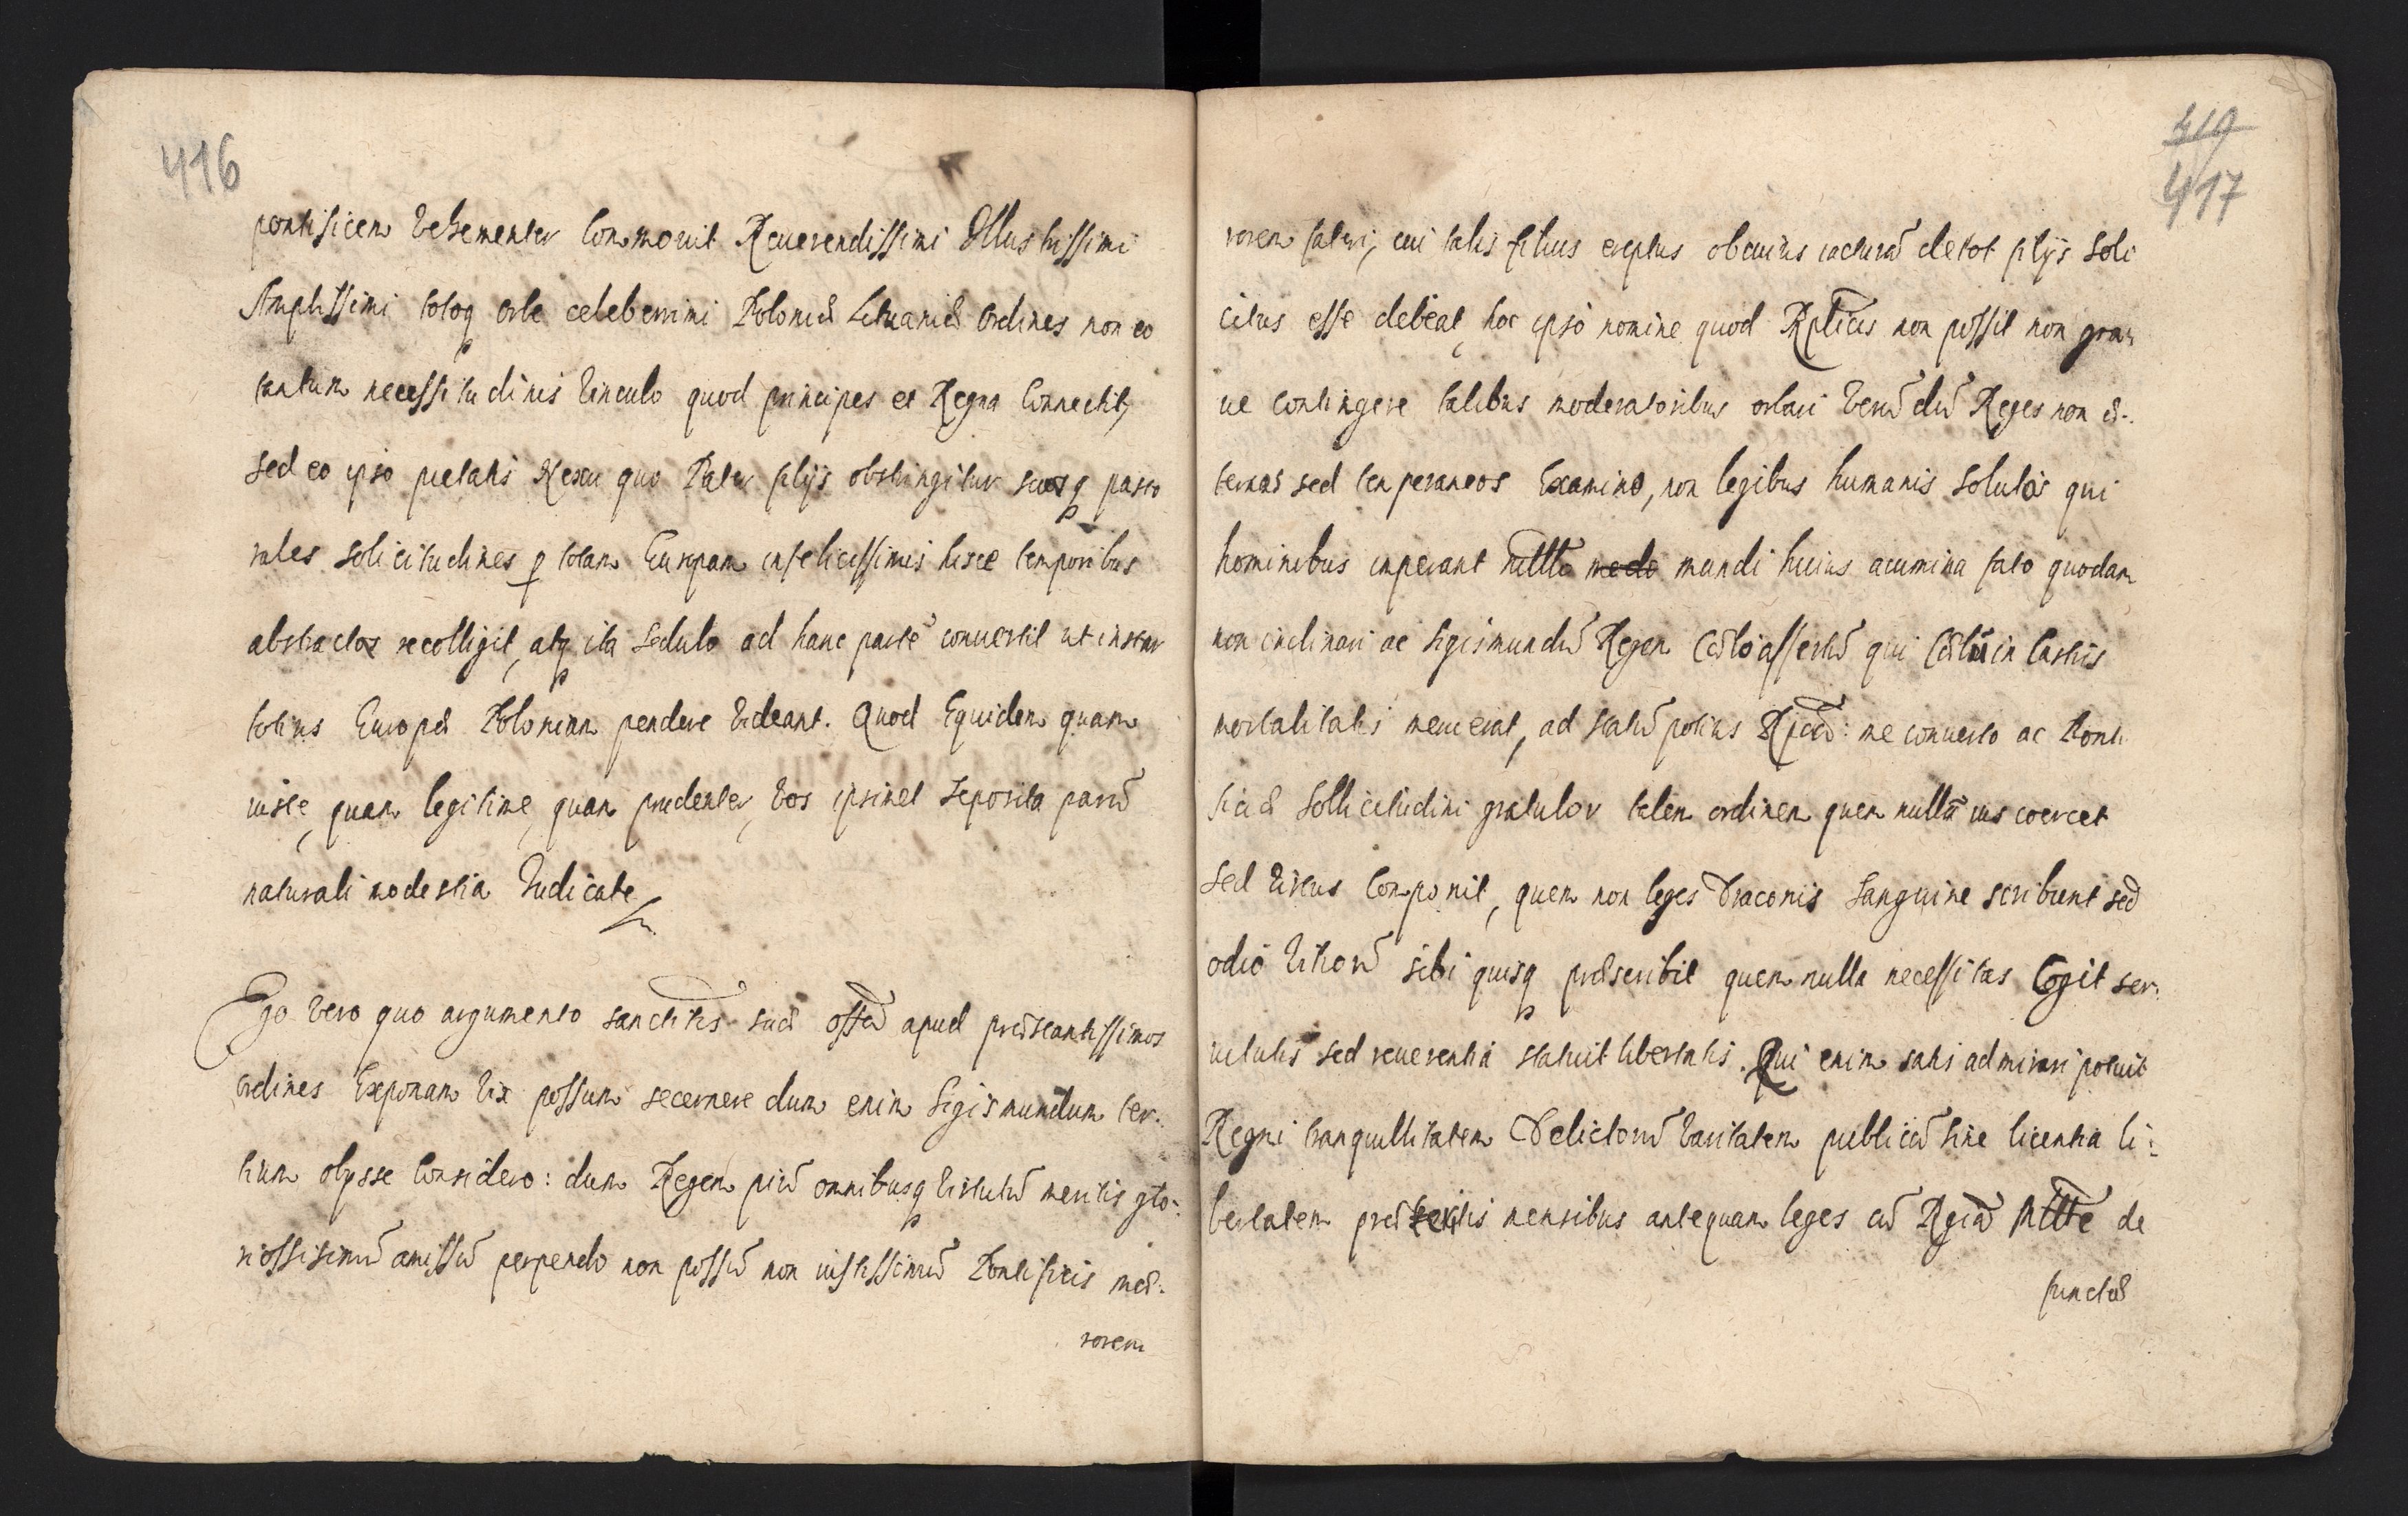 416
pontificem vehementer Commouit Reuerendissimi Illustrissimi
Amplissimi totoq orbe celeberrimi Poloniæ Lituaniæ Ordines non eo
tantum necessitudinis vinculo quod principes et Regna Connectit,
sed eo ipso pietatis Nexu quo Pater filijs obstringitur suosq pasto
rales solicitudines p totam Europam infelicissimis hisce temporibus
abstractos recolligit, atq ita sedulo ad hanc partē conuertit ut instar
totius Europæ Poloniam pendere videant. Quod Equidem quam
iuste, quam legitime, quam prudenter, vos ipsimet seposita parū
naturali modestia Iudicate
Ego vero quo argumento sanctitis suæ offū apud præstantissimos
ordines Exponam vix possum secernere dum enim Sigismundum ter:
tium obysse Considero: dum Regem piū omnibusq virtutū meritis glo:
riossisimū amissū perpendo non possū non iustissimū Pontificis mæ:
rorem
419
417
rorem fateri, cui talis filius ereptus ob cuius iacturā de tot filijs soli
citus esse debeat, hoc ipso nomine quod Rpticis non possit non gra:
ue contingere talibus moderatoribus orbari verū dū Reges non æ:
ternas sed temperaneos Examino, non legibus humanis solutos qui
hominibus imperant modo mundi huius acumina fato quodam
non inclinari ac Sigismundū Regem Cælo assertū qui Cælū in Castris
mortalitatis meruerat, ad statū potius me conuerto ac Ponti
ficiæ sollicitudini gratulor talem ordinem quem nullā ius coercet
sed virtus Componit, quem non leges Draconis sanguine scribunt sed
odio vitiorū sibi quisq præscribit quem nulla necessitas Cogit ser:
uitutis sed reuerentia statuit libertatis. Qui enim satis admirari potuit
Regni tranquillitatem Delictorū raritatem publicā sine licentia li:
bertatem præteritis mensibus antequam leges cū Rgiā Mtte de
functæ